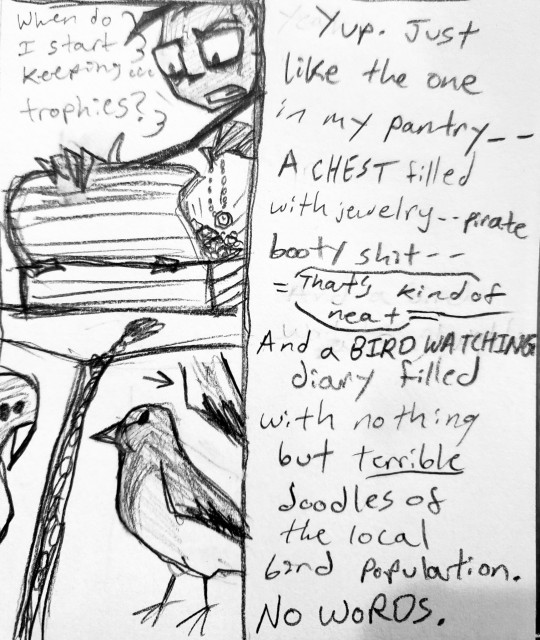 When do
I start
keeping...
trophies?
Yup. Just
like the one
in my pantry--
A CHEST filled
with jewelry--pirate
booty shit--
= That's kind of
neat =
And a BIRD WATCHING
diary filled
with nothing
but terrible
doodles of
the local
bird population.
NO WORDS.